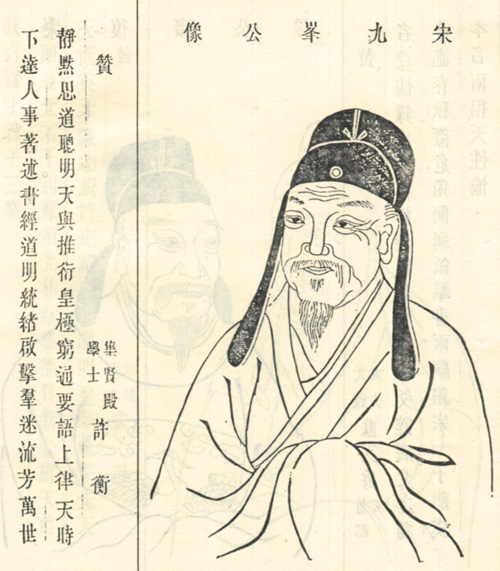 宋九峯公像
贊
集賢殿
學士
許衡
靜默思道聰明天與推衍皇極窮通要語上律天時
下達人事著述書經道明統緒啟擊羣迷流芳萬世